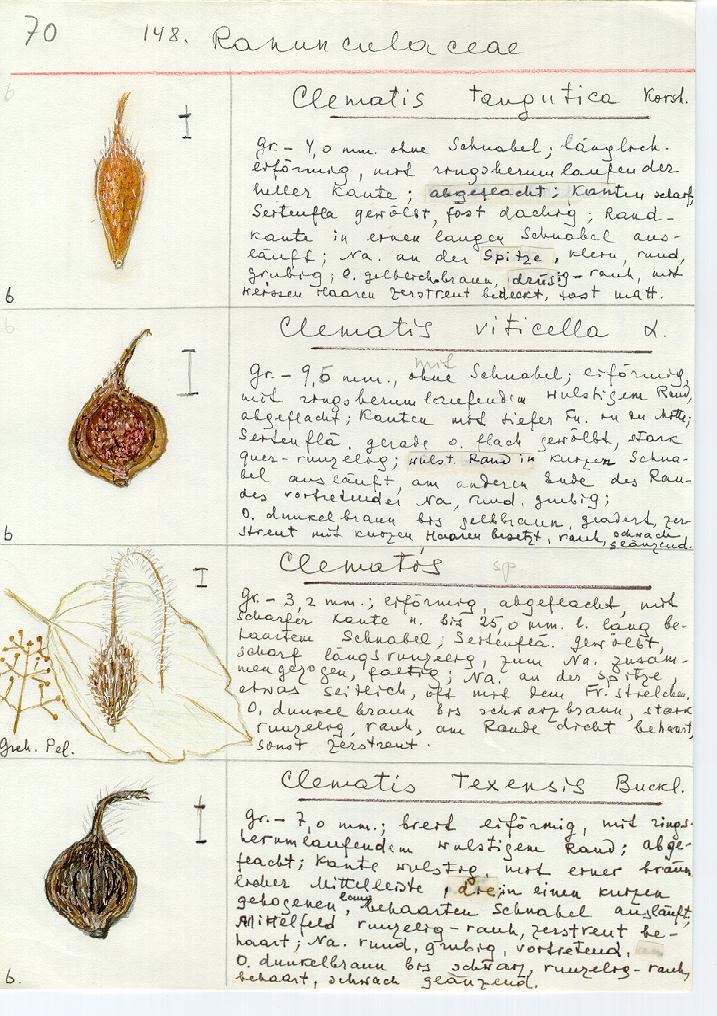 70 148. Ranunculaceae
Clematis tangutica Korsh.
Gr. – 4,0 mm. ohne Schnabel; länglich-
eiförmig, mit ringsherumlaufender
heller Kante; abgeflacht; Kanten scharf,
Seitenflä gewölbt, fast dachig; Rand-
kante in einen langen Schnabel aus-
läuft; Na. an der Spitze, klein, rund,
grubig; O. gelblichbraun, drüsig-rauh, mit
weissen Haaren zerstreut bedeckt, fast matt.
6
Clematis viticella L.
Gr. – 9,5 mm., mit Schnabel; eiförmig,
mit ringsherumlaufendem wulstigem Rand,
abgeflacht; Kanten mit tiefer Fu. in der Mitte;
Seitenflä. gerade o. flach gewölbt, stark
quer-runzelig; wulst. Rand in kurzen Schna-
bel ausläuft, am anderen Ende des Ran-
des vortretender Na, rund, grubig;
O. dunkelbraun bis gelbbraun, geadert, zer-
streut mit kurzen Haaren besetzt, rauh, schwach
glänzend.
6
Clematis sp.
Gr. – 3,2 mm.; eiförmig, abgeflacht, mit
scharfer Kante u. bis 25,0 mm. l. lang be-
haartem Schnabel; Seitenflä. gewölbt,
scharf längsrunzelig, zum Na. zusam-
mengezogen, faltig; Na. an der Spitze,
etwas seitlich, oft mit dem Fr. stielchen.
O. dunkelbraun bis schwarzbraun, stark
runzelig, rauh, am Rande dicht behaart,
sonst zerstreut.
Grch. Pel.
Clematis texensis Buckl.
Gr. – 7,0 mm.; breit eiförmig, mit rings-
herumlaufendem wulstigem Rand; abge-
flacht; Kante wulstig, mit einer bräun-
licher Mittelleiste, die in einen kurzen
gebogenen, lang behaarten Schnabel ausläuft,
Mittelfeld runzelig-rauh, zerstreut be-
haart; Na. rund, grubig, vortretend.
O. dunkelbraun bis schwarz, runzelig-rauh,
behaart, schwach glänzend.
6.